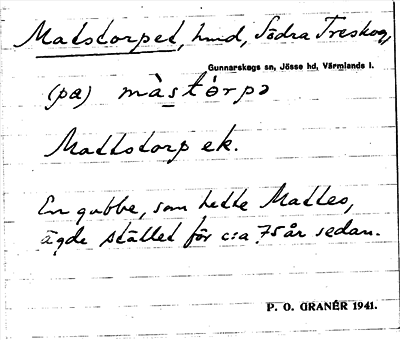 Matstorpet, hmd, Södra Treskog,
Gunnarskogs sn, Jösse hd, Värmlands l.
(pa) màstórpə
Mattstorp ek.
En gubbe, som hette Mattes,
ägde stället för c:a 75 år sedan.
P. O. GRANÉR 1941.